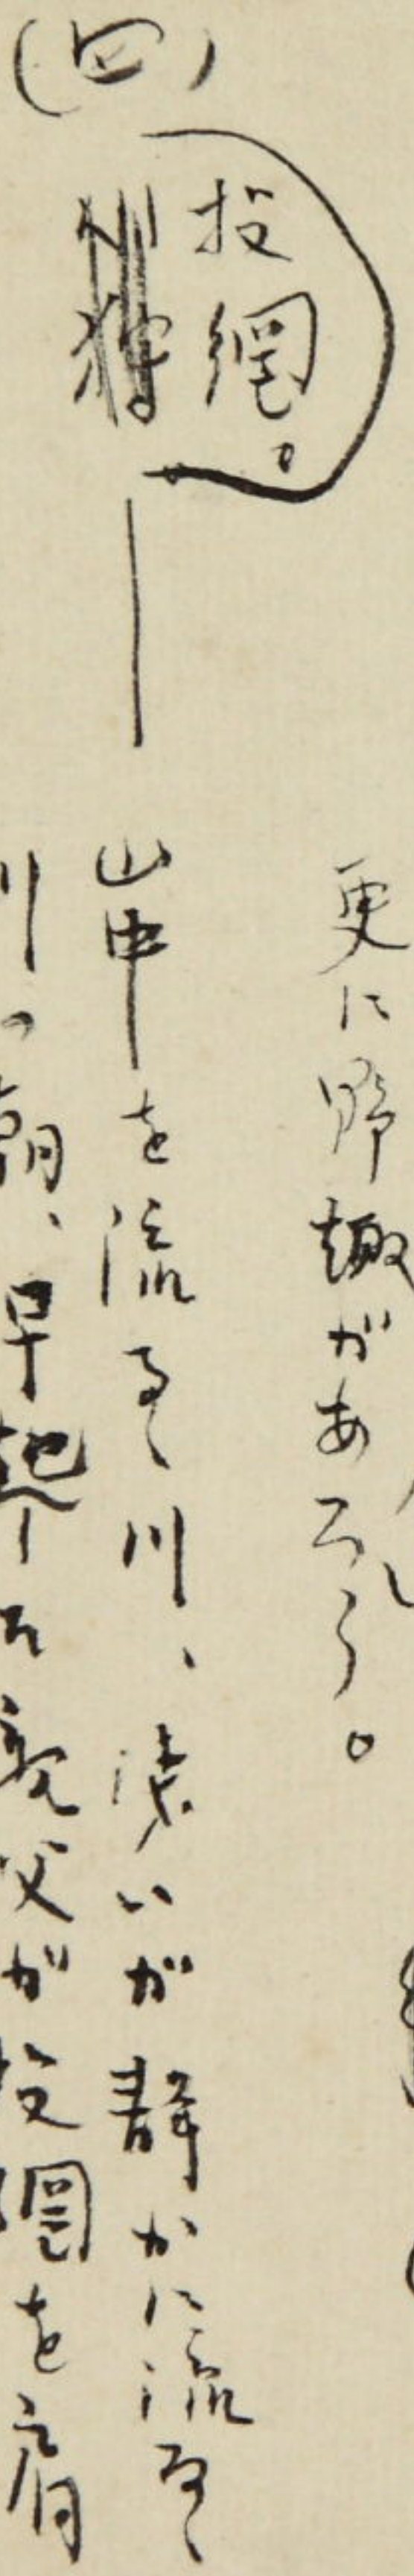 更に野趣があろう。
(四)
投網。
山中を流るゝ川、浅いが静かに流るゝ
川の朝、早起した親父が投網を肩